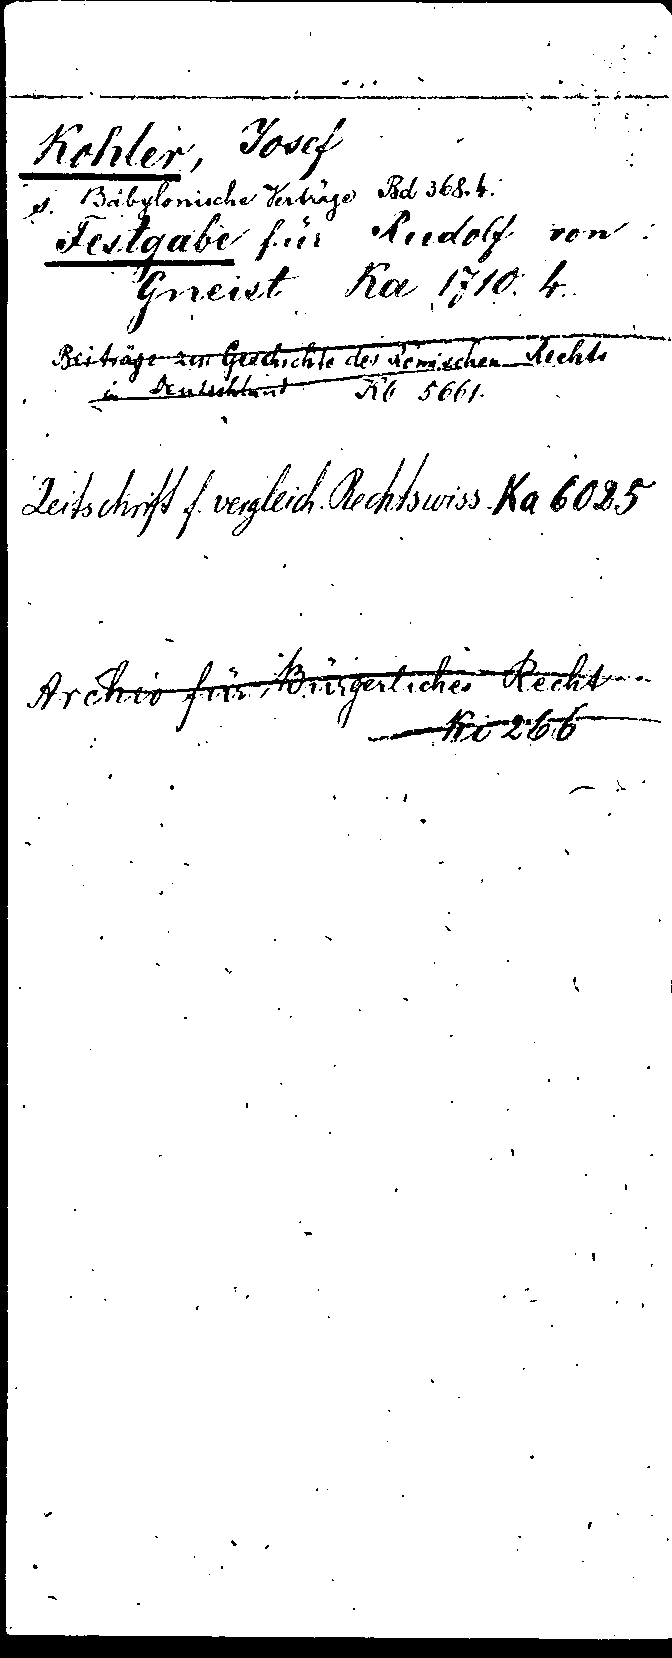 Kohler, Josef
s. Babylonische Verträge Bd 368.4.
Festgabe für Rudolf von
Gneist Ka 1710. 4.
Beiträge zur Geschichte des Römischen Rechts
in Deutschland Kb 5661.
Zeitschrift f. vergleich. Rechtswiss. Ka 6025
Archiv für Bürgerliches Recht
Ki 266